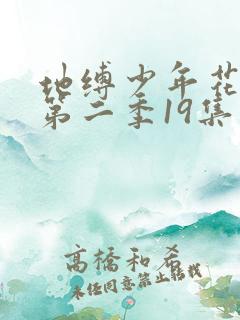 地缚少年花
第二季19集
高橋和希
未经同意禁止转载